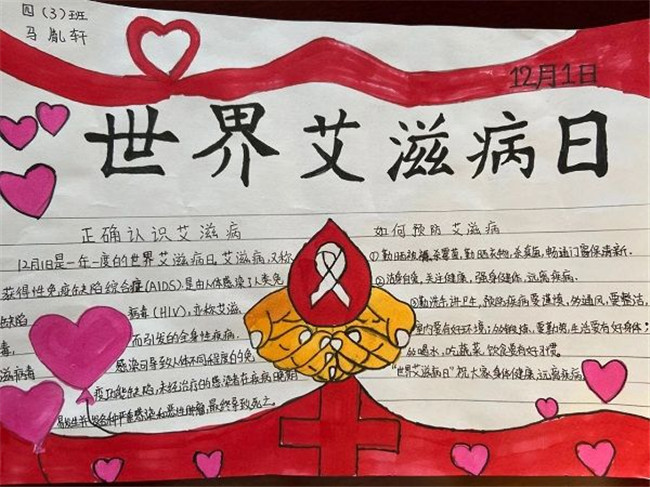 四(3)班
马胤轩
12月1日
世界艾滋病日
正确认识艾滋病
12月1日是一年一度的世界艾滋病日,艾滋病,又称
获得性免疫缺陷综合症(AIDS),是由人体感染了人类免
疫缺陷 病毒(HIV),亦称艾滋
毒, 而引发的全身性疾病,
滋病毒 感染可导致人体不同程度的免
疫功能缺陷,未经治疗的感染者在疾病晚期
易发生各种严重感染和恶性肿瘤,最终导致死亡。
如何预防艾滋病
①勤晒被褥,杀霉菌,勤晒衣物,杀病菌,畅通门窗保清新。
关注健康,强身健体,远离疾病。
③勤洗手,讲卫生,预防疾病要谨慎,勿通风,要整洁,
室内要有好环境;勤锻炼,要勤劳,生活要有好身体;
多喝水,吃蔬菜,饮食要有好习惯。
"世界艾滋病日"祝大家身体健康,远离疾病。